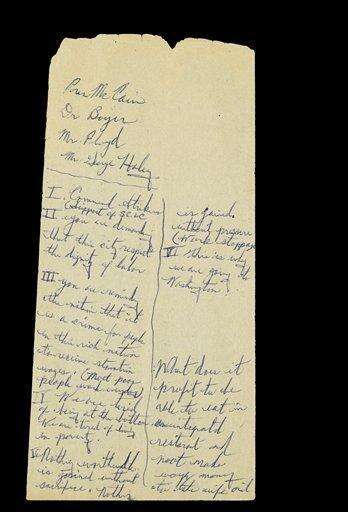 Dr Boyer
Mr
Mr.
I. General strike
(Support of SCLC
II you are demanding
that this city respect
the dignity of labor
III you are reminding
the nation that it
is a crime for people
in this rich nation
to receive starvation
wages. (Most poor
people work everyday
We are tired
of being at the bottom
We are tired of living
in poverty
V Nothing worthwhile
is gained without
sacrifice. Nothing
is gained
without
(Work stoppage
VI This is why
we are going to
Washington
What does it
profit to be
able to eat in
an integrated
restaurant and
not make
enough money
to take wife out